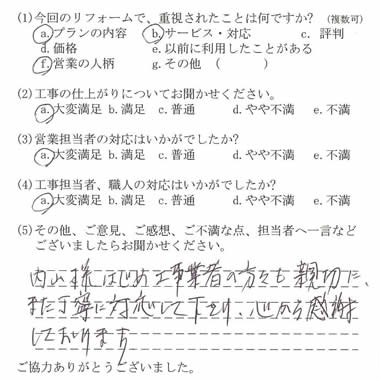 (1)今回のリフォームで、重視されたことは何ですか? (複数可)
a.プランの内容 b.サービス・対応 c. 評判
d.価格 e.以前に利用したことがある
f.営業の人柄 g.その他 ( )
(2)工事の仕上がりについてお聞かせください。
a.大変満足 b.満足 c.普通 d.やや不満 e.不満
(3)営業担当者の対応はいかがでしたか?
a.大変満足 b.満足 c.普通 d.やや不満 e.不満
(4)工事担当者、職人の対応はいかがでしたか?
a.大変満足 b.満足 c.普通 d.やや不満 e.不満
(5)その他、ご意見、ご感想、ご不満な点、担当者へ一言など
ございましたらお聞かせください。
様はじめ工事業者の方々も親切に、
また丁寧に対応して下さり、心から感謝
しております
ご協力ありがとうございました。